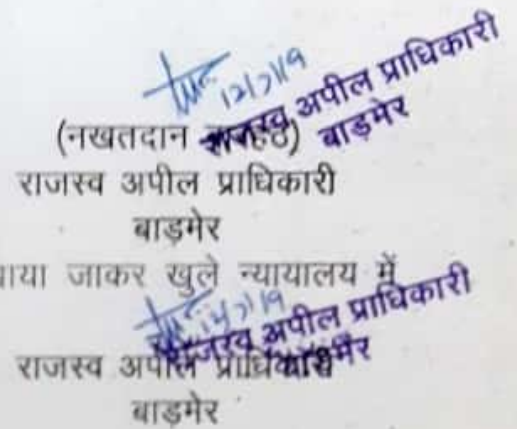 12/7/19
राजस्व अपील प्राधिकारी
बाड़मेर
(नखतदान बारहठ)
राजस्व अपील प्राधिकारी
बाड़मेर
जाकर खुले न्यायालय में
राजस्व अपील प्राधिकारी
बाड़मेर
राजस्व अपील प्राधिकारी
बाड़मेर